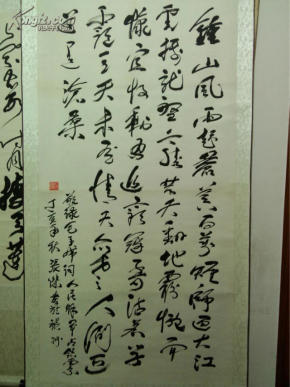 鐘山風雨起蒼黃百萬雄師過大江
虎踞龍盤今勝昔天翻地覆慨而
慷宜將剩勇追窮寇不可沽名学
霸王天若有情天亦老人間正
道是滄桑
敬錄毛主席詞人民解放軍占領南京
丁亥年秋